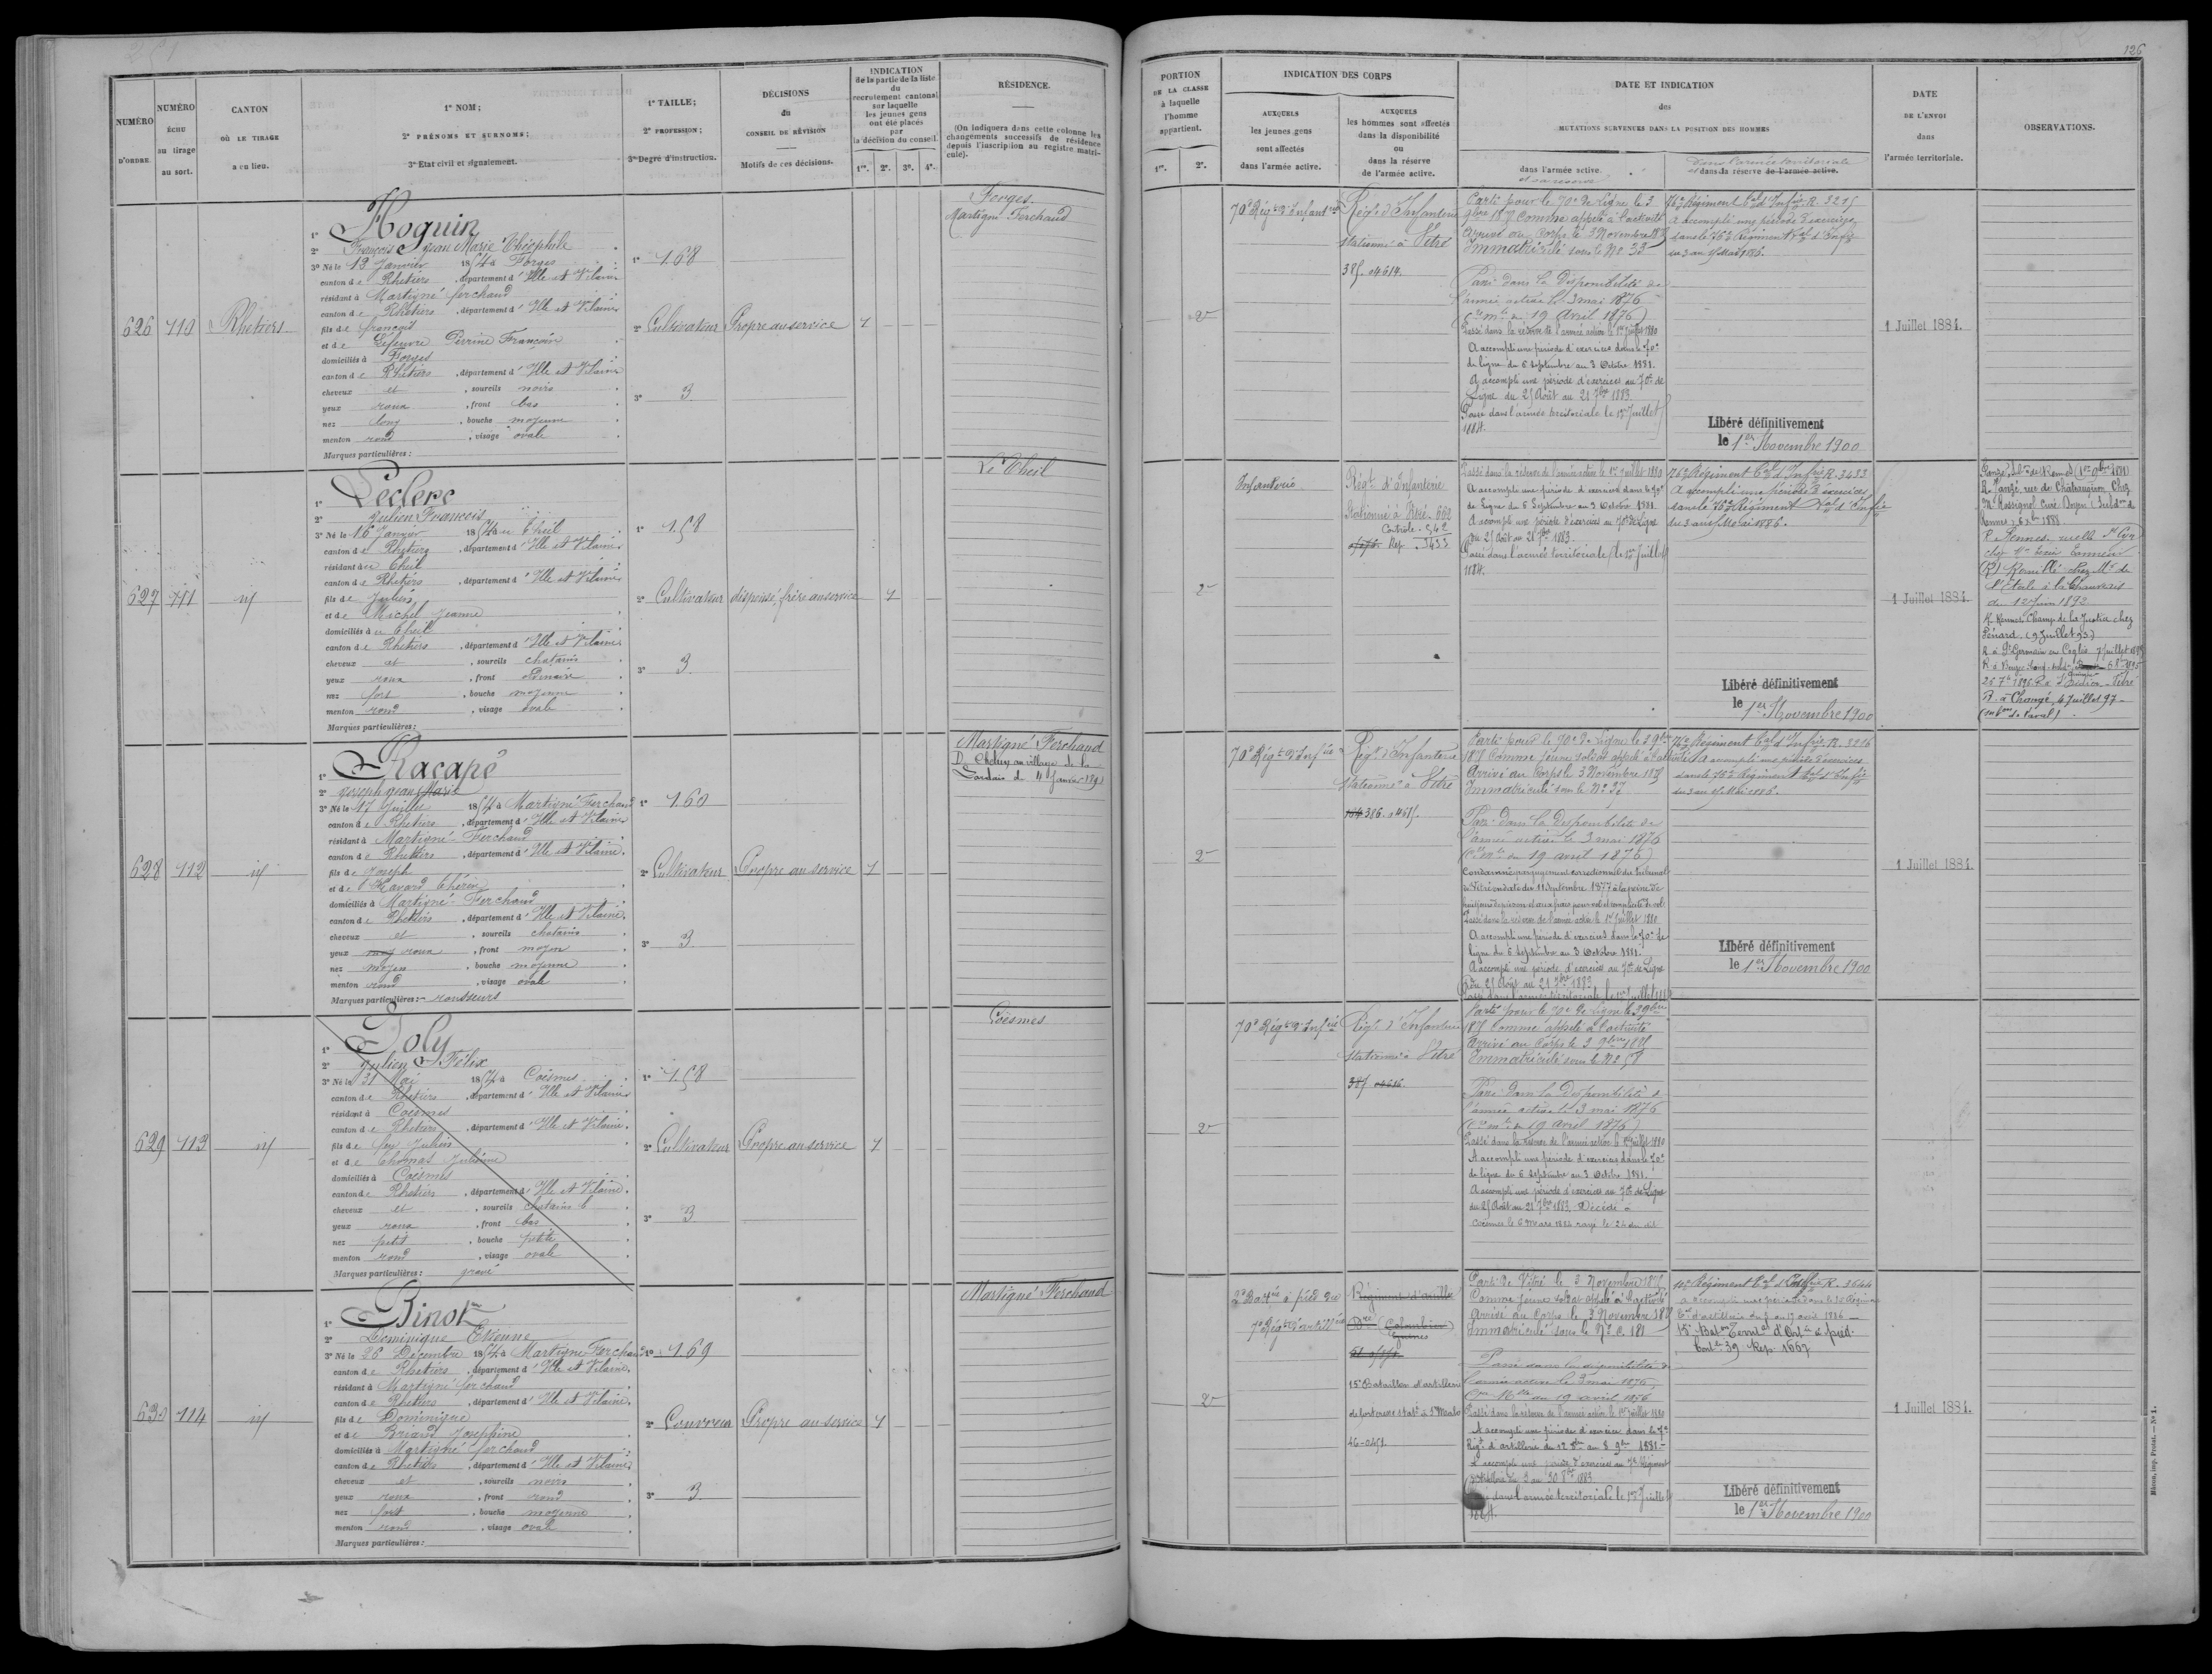 251
NUMÉRO
D'ORDRE.
NUMÉRO
ÉCHU
au tirage
au sort.
CANTON
OÙ LE TIRAGE
a eu lieu.
1° NOM;
2° PRÉNOMS ET SURNOMS;
3° Etat civil et signalement.
1° TAILLE;
2° PROFESSION;
3° Degré d'instruction.
DÉCISIONS
du
CONSEIL DE RÉVISION
Motifs de ces décisions.
INDICATION
de la partie de la liste
du
recrutement cantonal
sur laquelle
les jeunes gens
ont été placés
par
la décision du conseil.
1re. 2e. 3e. 4e.
RÉSIDENCE.
(On indiquera dans cette colonne les
changements successifs de résidence
depuis l'inscription au registre matri-
cule).
626 110 Rhetiers
1° Hoguin
2° François Jean Marie Théophile
3° Né le 13 Janvier 1854 à Forges
canton de Rhetiers, département d'Ille et Vilaine
résidant à Martigné ferchaud
canton de Rhetiers, département d'Ille et Vilaine
fils de françois
et de Lefeuvre Perrine Françoise
domiciliés à Forges
canton de Rhetiers, département d'Ille et Vilaine
cheveux et, sourcils noirs
yeux roux, front bas
nez long, bouche moyenne
menton rond, visage ovale
Marques particulières :
1° 168
2° Cultivateur
3° 3
Propre au service
1
Forges.
Martigné Ferchaud
627 111 id
1° Leclerc
2° Julien François
3° Né le 16 Janvier 1854 au Theil
canton de Rhetiers, département d'Ille et Vilaine
résidant au Theil
canton de Rhetiers, département d'Ille et Vilaine
fils de Julien
et de Michel Jeanne
domiciliés au Theil
canton de Rhetiers, département d'Ille et Vilaine
cheveux et, sourcils chatains
yeux roux, front ordinaire
nez fort, bouche moyenne
menton rond, visage ovale
Marques particulières :
1° 158
2° Cultivateur
3° 3
dispensé, frère au service
1
Le Theil
628 112 id
1° Racapé
2° Joseph Jean Marie
3° Né le 17 Juillet 1854 à Martigné Ferchaud
canton de Rhetiers, département d'Ille et Vilaine
résidant à Martigné-Ferchaud
canton de Rhetiers, département d'Ille et Vilaine.
fils de Joseph
et de Havard Thérèse
domiciliés à Martigné-Ferchaud
canton de Rhetiers, département d'Ille et Vilaine.
cheveux et, sourcils chatains
yeux roux, front moyen
nez moyen, bouche moyenne
menton rond, visage ovale
Marques particulières : rousseurs
1° 160
2° Cultivateur
3° 3
Propre au service
1
Martigné Ferchaud
629 113 id
1° Joly
2° Julien Félix
3° Né le 31 Mai 1854 à Coësmes
canton de Rhetiers, département d'Ille et Vilaine
résidant à Coësmes
canton de Rhetiers, département d'Ille et Vilaine.
fils de feu Julien
et de Thomas Julienne
domiciliés à Coësmes
canton de Rhetiers, département d'Ille et Vilaine.
cheveux et, sourcils chatains
yeux roux, front bas
nez petit, bouche petite
menton rond, visage ovale
Marques particulières : gravé
1° 158
2° Cultivateur
3° 3
Propre au service
1
Coësmes
630 114 id
1° Pinot
2° Dominique Etienne
3° Né le 26 Décembre 1854 à Martigné-Ferchaud
canton de Rhetiers, département d'Ille et Vilaine.
résidant à Martigné ferchaud
canton de Rhetiers, département d'Ille et Vilaine.
fils de Dominique
et de Briand Joséphine
domiciliés à Martigné ferchaud
canton de Rhetiers, département d'Ille et Vilaine
cheveux et, sourcils noirs
yeux roux, front rond
nez fort, bouche moyenne
menton rond, visage ovale
Marques particulières :
1° 169
2° Couvreur
3° 3
Propre au service
1
Martigné Ferchaud
126
PORTION
DE LA CLASSE
à laquelle
l'homme
appartient.
1re. 2e.
INDICATION DES CORPS
AUXQUELS
les jeunes gens
sont affectés
dans l'armée active.
AUXQUELS
les hommes sont affectés
dans la disponibilité
ou
dans la réserve
de l'armée active.
DATE ET INDICATION
des
MUTATIONS SURVENUES DANS LA POSITION DES HOMMES
dans l'armée active.
et sa réserve
Dans l'armée territoriale
et dans la réserve de l'armée active.
DATE
DE L'ENVOI
dans
l'armée territoriale.
OBSERVATIONS.
2
70e Régt d'Infanterie
Régt d'Infanterie
stationné à Vitré
385. 04614.
Parti pour le 70e de Ligne le 3
9bre 1875 Comme appelé à l'activité
Arrivé au Corps le 3 Novembre 1875
Immatriculé sous le No 33
Passé dans la Disponibilité de
l'armée active le 3 mai 1876
(Cre mlle du 19 Avril 1876)
Passé dans la réserve de l'armée active le 1er Juillet 1880
A accompli une période d'exercices dans le 70e
de ligne du 6 Septembre au 3 Octobre 1881.
A accompli une période d'exercices au 70e de
Ligne du 25 Août au 21 7bre 1883.
Passé dans l'armée territoriale le 1er Juillet
1884.
76e Régiment Tal d'Infie R. 3215
A accompli une période d'exercices
dans le 76e Régiment Tal d'Infie
du 3 au 15 Mai 1886.
Libéré définitivement
le 1er Novembre 1900
1 Juillet 1884.
2
Infanterie
Régt d'Infanterie
Stationné à Vitré 662
Contrôle. 542
Rep. 3433
Passé dans la réserve de l'armée active le 1er Juillet 1880
A accompli une période d'exercices dans le 70e
de Ligne du 6 Septembre au 3 Octobre 1881.
A accompli une période d'exercices au 70e de Ligne
du 25 Août au 21 7bre 1883.
Passé dans l'armée territoriale le 1er Juillet
1884.
76e Régiment Tal d'Infie R. 3433
A accompli une période d'exercices
dans le 76e Régiment Tal d'Infie
du 3 au 15 Mai 1886.
Libéré définitivement
le 1er Novembre 1900
1 Juillet 1884.
R. Janzé rue de Châteaugiron Chez
Mr Rossignol Curé Doyen
R. Rennes
de 12 Juin 1892
R Rennes Champ de la Justice chez
(9 Juillet 95)
R à St Germain en Coglès 7 Juillet
R. à Changé 4 Juillet 97
(subon de Laval).
2
70e Régt d'Infie
Régt d'Infanterie
Stationné à Vitré
386. 0415.
Parti pour le 70e de Ligne le 3 9bre
1875 Comme jeune soldat appelé à l'activité
Arrivé au Corps le 3 Novembre 1875
Immatriculé sous le No 37
Passé dans la Disponibilité de
l'armée active le 3 mai 1876
(Cre mlle du 19 avril 1876)
Condamné par jugement correctionnel du Tribunal
de Vitré en date du 11 Septembre 1877 à la peine de
Passé dans la réserve de l'armée active le 1er Juillet 1880
A accompli une période d'exercices dans le 70e de
ligne du 6 Septembre au 3 Octobre 1881.
A accompli une période d'exercices au 70e de Ligne
du 25 Août au 21 7bre 1883.
Passé dans l'armée territoriale le 1er Juillet 1884
76e Régiment Tal d'Infie R. 3216
A accompli une période d'exercices
dans le 76e Régiment Tal d'Infie
du 3 au 15 Mai 1886.
Libéré définitivement
le 1er Novembre 1900
1 Juillet 1884.
2
70e Régt d'Infie
Régt d'Infanterie
stationné à Vitré
387 04616.
Parti pour le 70e de ligne le 3 9bre
1875 Comme appelé à l'activité
Arrivé au Corps le 3 9bre 1875
Immatriculé sous le No 58
Passé dans la Disponibilité de
l'armée active le 3 mai 1876
(Cre mlle du 19 avril 1876)
Passé dans la réserve de l'armée active le 1er Juillet 1880
A accompli une période d'exercices dans le 70e
de ligne du 6 Septembre au 3 Octobre 1881.
A accompli une période d'exercices au 70e de Ligne
du 25 Août au 21 7bre 1883. Décédé à
Coësmes le 6 Mars 1884 rayé le 26 du dit
2
2e Batie à pied du
7e Régt d'artillie
Régiment d'artillie
15e Bataillon d'artillerie
de forteresse stat. à St Malo
46-0451.
Parti de Vitré le 3 Novembre 1875
Comme jeune soldat appelé à l'activité
Arrivé au Corps le 3 Novembre 1875
Immatriculé sous le No C. 181
Passé dans la disponibilité de
l'armée active le 3 mai 1876,
Cre Mlle du 19 avril 1876
Passé dans la réserve de l'armée active le 1er Juillet 1880
A accompli une période d'exercices dans le 7e
Régt d'artillerie du 12 8bre au 8 9bre 1881.
A accompli une période d'exercices au 7e Régiment
d'Artillerie du 3 au 30 8bre 1883
Passé dans l'armée territoriale le 1er Juillet
1884.
10e Régiment Tal d'Artillie R. 3644
15e Baton Territal d'Artie à pied.
Contle 39 Rep. 1667
Libéré définitivement
le 1er Novembre 1900
1 Juillet 1884.
Mâcon, imp. Protat. — No 1.